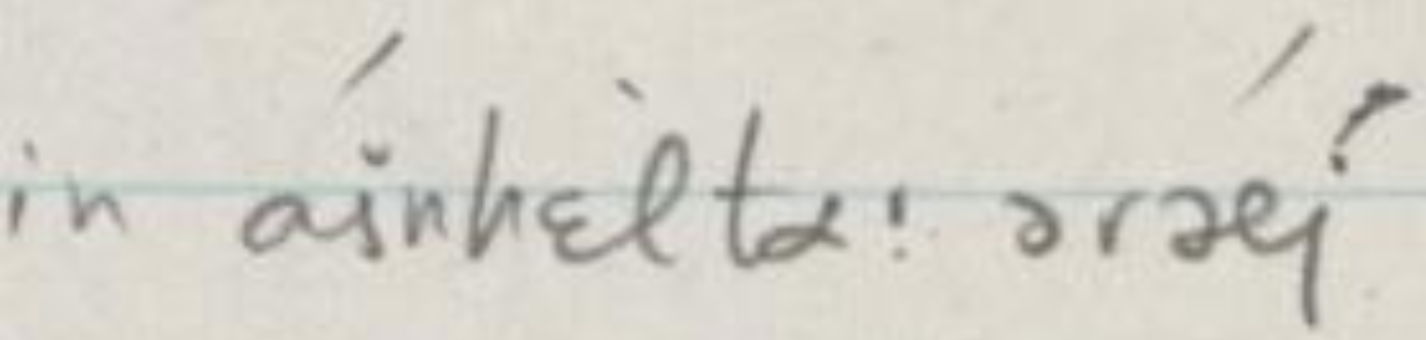 in ái̯nhɛ̀ltα: ərəé̜i̯